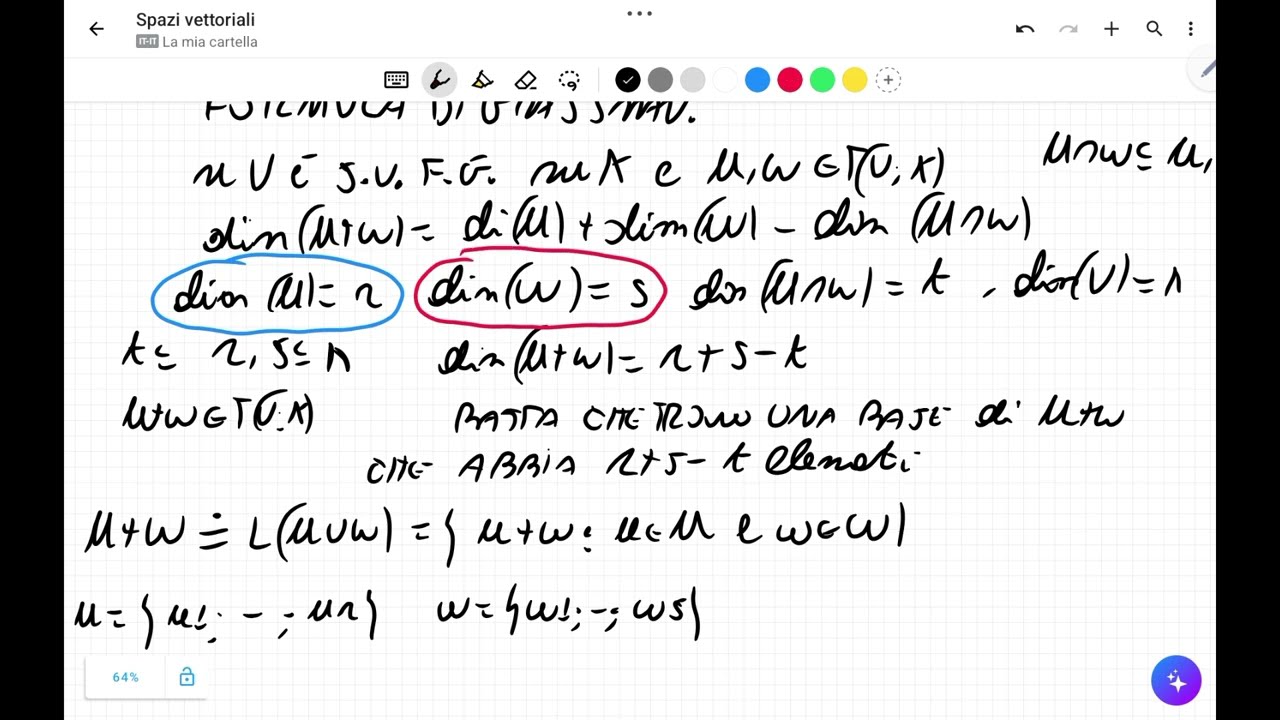 Spazi vettoriali
IT-IT La mia cartella
FORMULA DI GRASSMAN.
se V è S.V. F.G. su K e U, W ∈ T(V, K) U∩W ⊆ U,
dim(U+W) = di(U) + dim(W) - dim (U∩W)
dim (U) = r dim(W) = s dim (U∩W) = t , dim(V) = n
t ≤ r, s ≤ n dim(U+W) = r + s - t
U+W ∈ T(V, K) BASTA CHE TROVO UNA BASE di U+W
CHE ABBIA r+s-t elementi
U+W ≐ L(U∪W) = { u+w : u∈U e w∈W }
u = { u1; - ; ur } w = { w1; -; ws }
64%